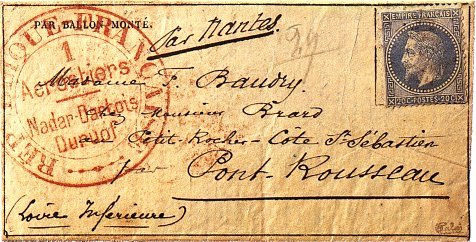 PAR BALLON MONTÉ.
Par Nantes.
29
RÉPUBLIQUE FRANÇAISE
1
Aérostiers
Nadar-Dartois
Duruof
EMPIRE FRANÇAIS
20C POSTES 20C
Madame F. Baudry
chez Monsieur Brard
au Petit-Rocher-Côte St Sébastien
Pont-Rousseau
(Loire Inférieure)